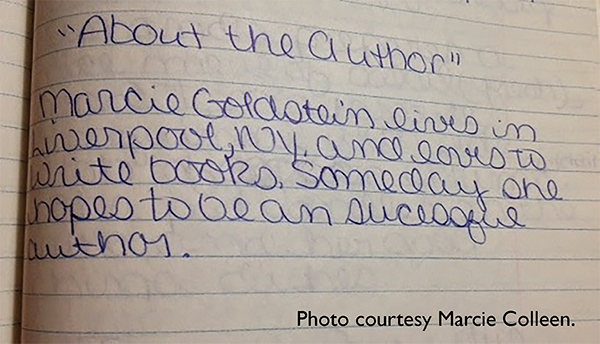 "About the author"
Marcie Goldstein lives in
Liverpool, NY. and loves to
write books. Someday she
hopes to be an sucessful
author.
Photo courtesy Marcie Colleen.